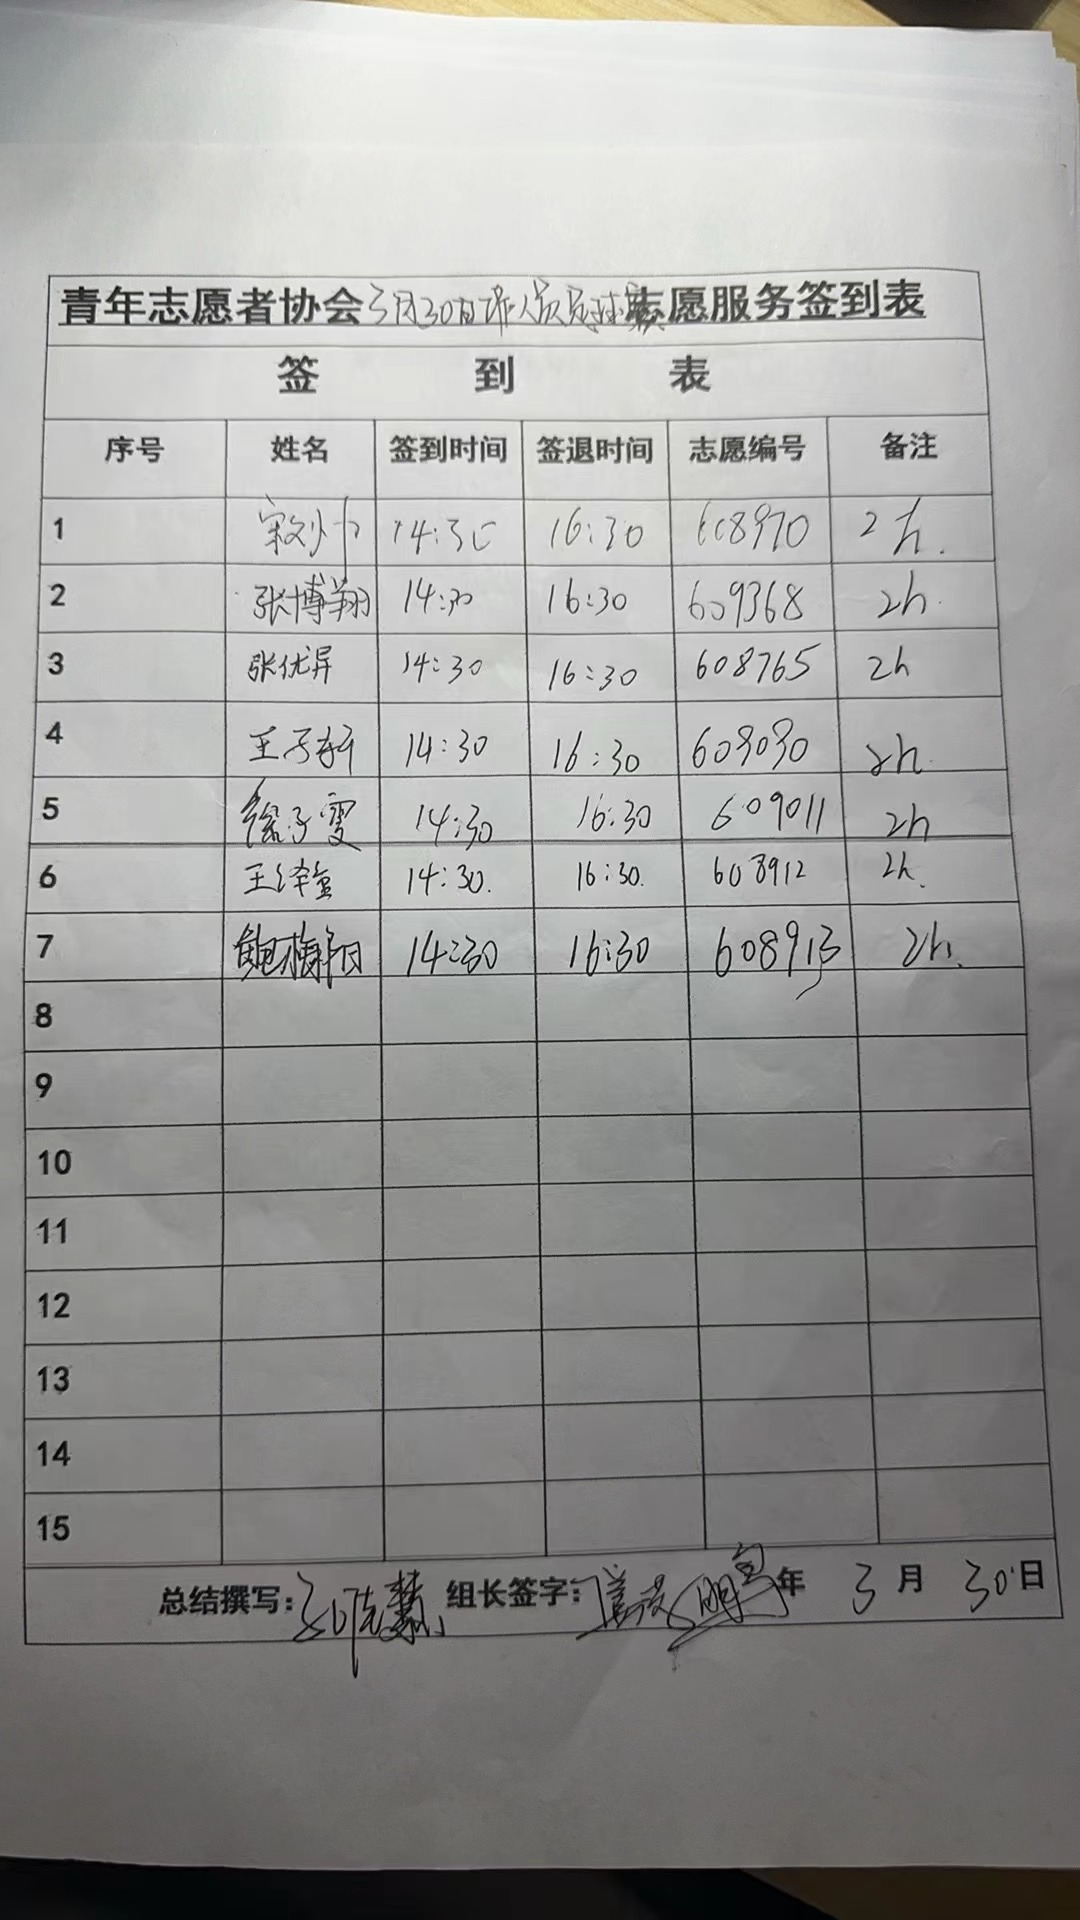 青年志愿者协会3月30日 人员足球赛志愿服务签到表
签 到 表
序号 姓名 签到时间 签退时间 志愿编号 备注
1 14:30 16:30 608970 2h.
2 张博翔 14:30 16:30 609368 2h.
3 张优异 14:30 16:30 608765 2h
4 王子轩 14:30 16:30 2h.
5 徐子雯 14:30 16:30 609011 2h
6 王泽 14:30. 16:30. 608912 2h.
7 鲍梅阳 14:30 16:30 608913 2h.
8
9
10
11
12
13
14
15
总结撰写: 组长签字: 年 3月 30日